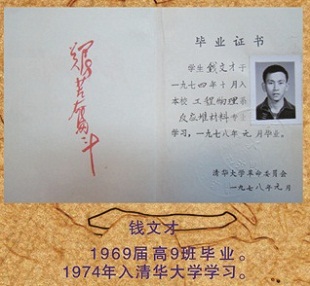 艰苦奋斗
毕业证书
学生 钱文才 于
一九七四年十月入
本校 工程物理系
反应堆材料专业
学习,一九七八年元月毕业。
清华大学革命委员会
一九七八年元月
钱文才
1969届高9班毕业。
1974年入清华大学学习。